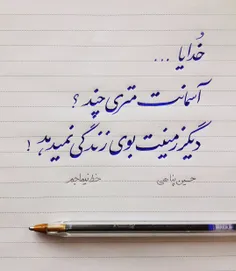 خدایا ...
آسمانت متری چند ؟
دیگر زمینت بوی زندگی نمیدهد !
حسین پناهی
خط نیما جم